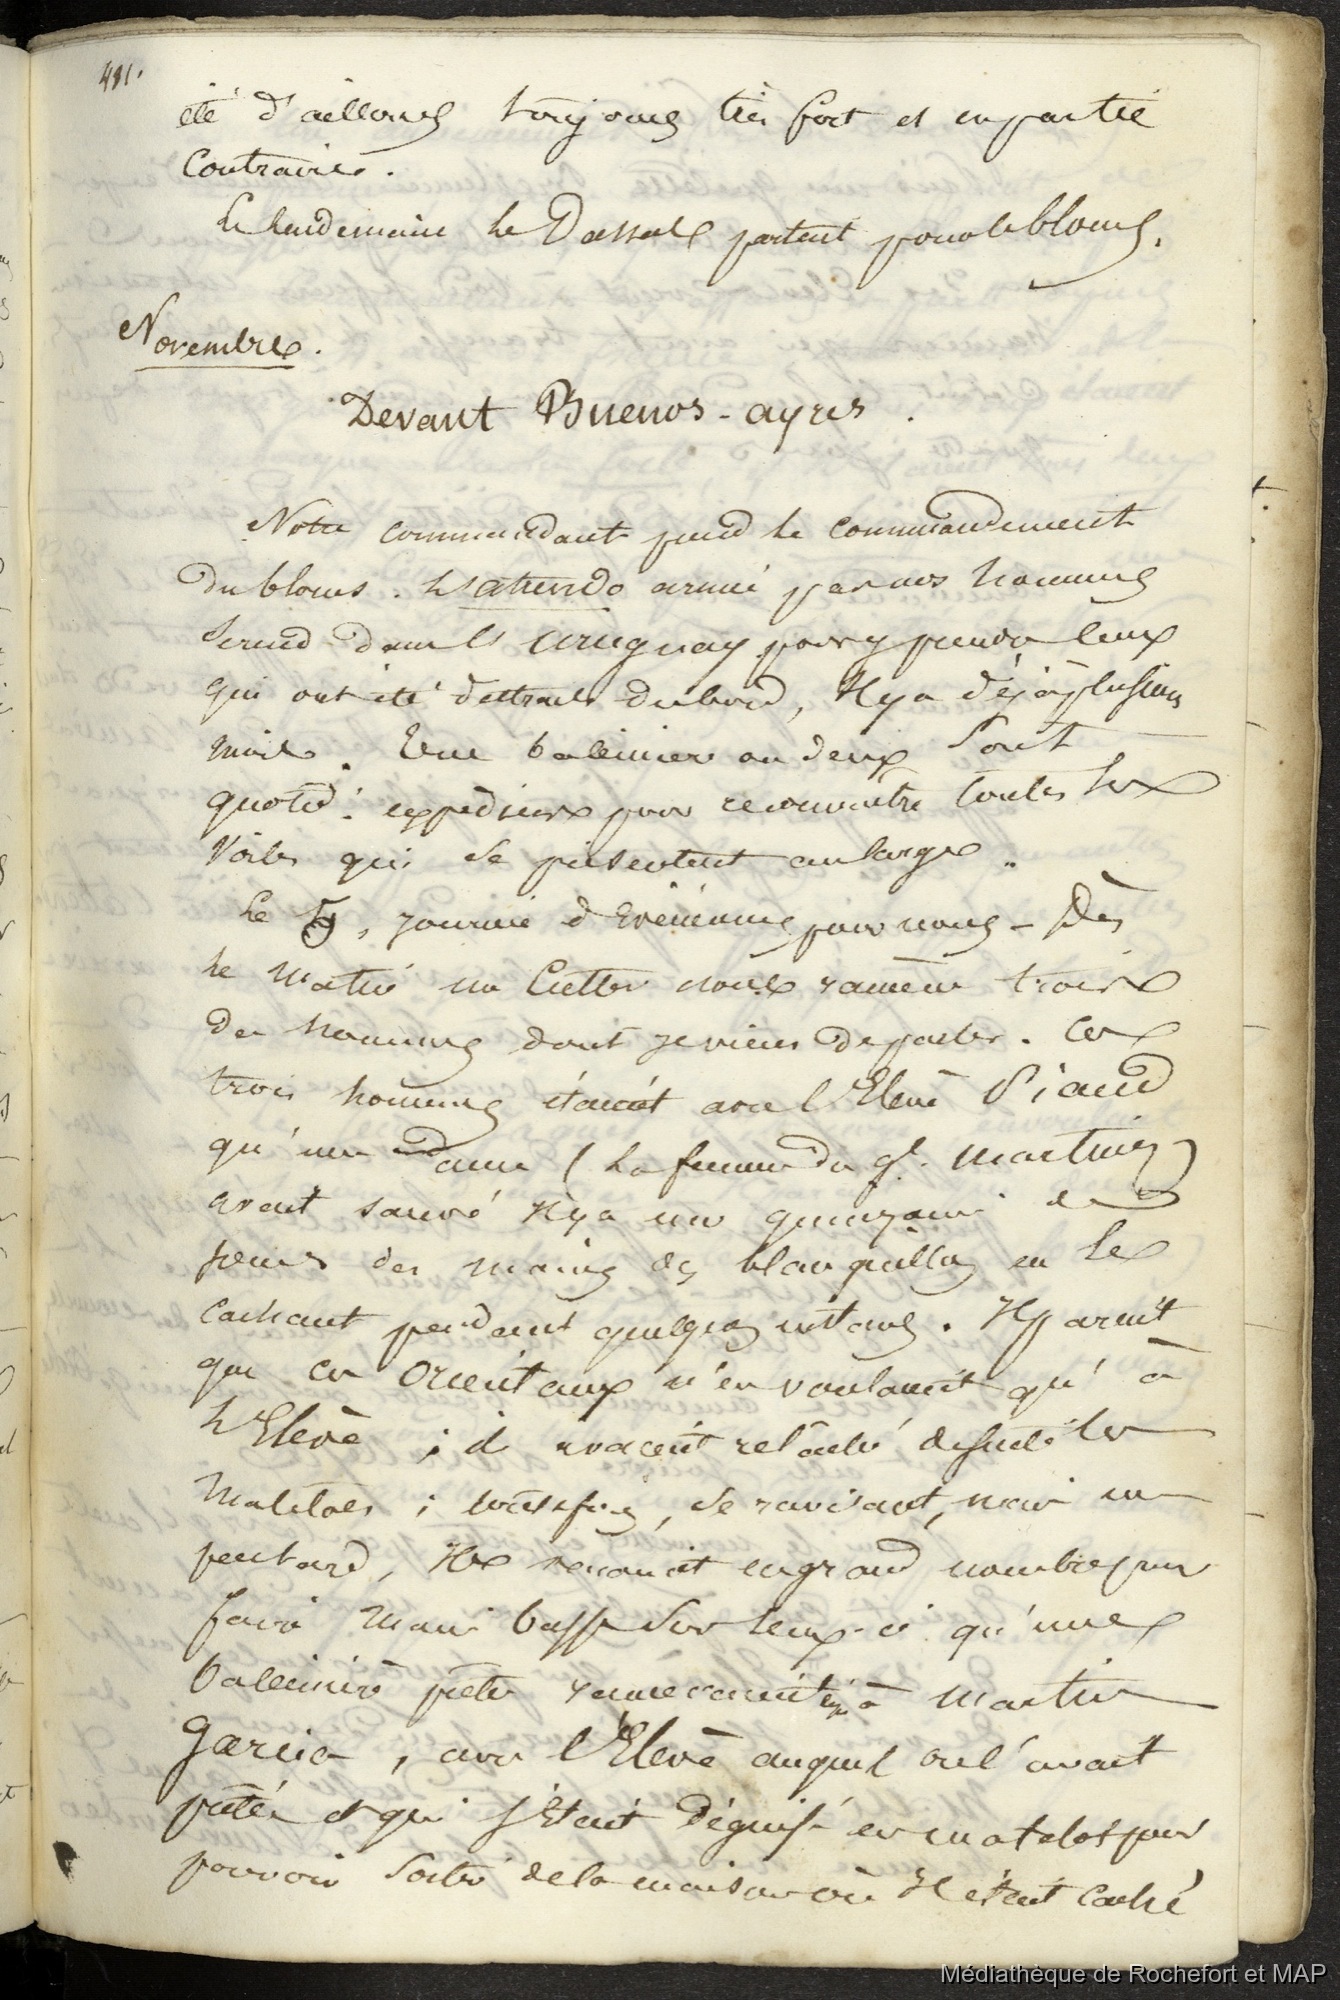 481.
été d'ailleurs toujours très fort et en partie
contraire.
Le lendemain le Dassas partent pour le blocus.
Novembre.
Devant Buenos-ayres.
Notre commandant prend le commandement
du blocus. L'atrevido armé par nos hommes
se rend dans l'uruguay pour y prendre ceux
qui ont été détachés du bord, il y a déjà plusieurs
mois. Une baleinière ou deux sont
quotid. expédiées pour reconnaître toutes les
voiles qui se présentent au large.
Le 5, journée d'Evénemens pour nous - Dès
le matin un Cutter nous ramène trois
des hommes dont je viens de parler. Ces
trois hommes étaient avec l'Elève Piaud
qu'une dame (la femme du gl. Martinez)
avait sauvé il y a une quinzaine de
jours des mains des blanquillos en le
cachant pendant quelques instans. Il parait
que ces Orientaux n'en voulaient qu'à
l'Elève ; ils avaient relâché de suite les
matelots ; toutefois, se ravisant, mais un
peu tard, ils venaient en grand nombre pour
faire main basse sur ceux-ci qu'une
baleinière prête ramenait à Martin
Garcia, avec l'Elève auquel on l'avait
prêtée et qui s'était déguisé en matelot pour
pouvoir sortir de la maison où il était caché
Médiathèque de Rochefort et MAP